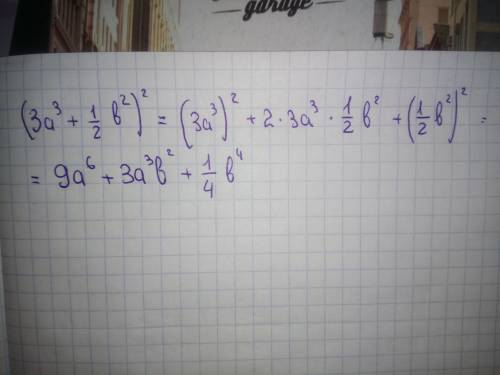 garage
(3a³ + 1/2 b²)² = (3a³)² + 2·3a³ · 1/2 b² + (1/2 b²)² =
= 9a⁶ + 3a³b² + 1/4 b⁴